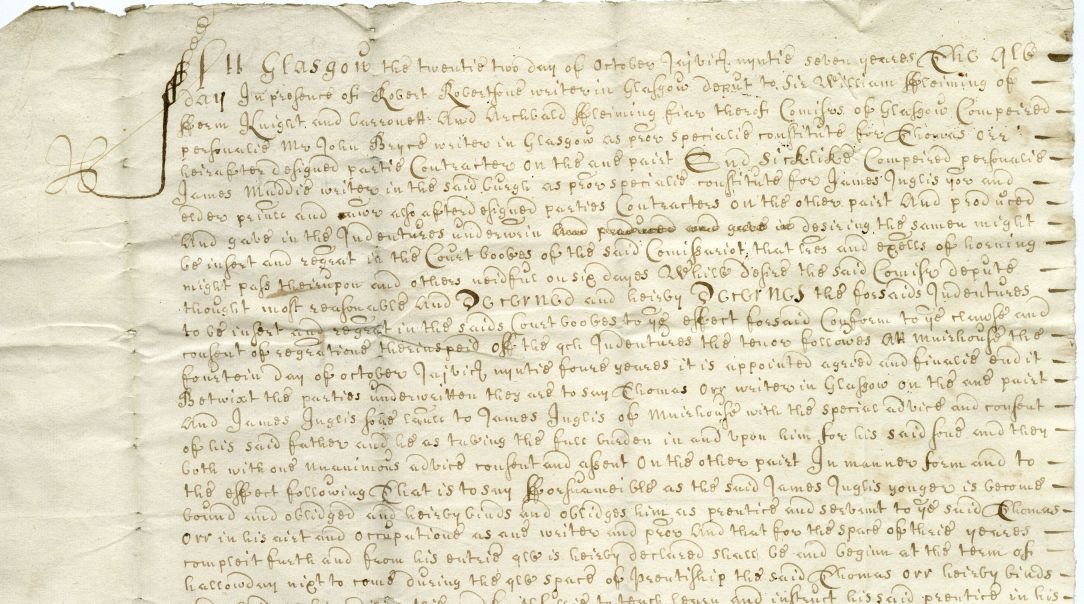 Att Glasgow the twentie two day of October Jajvickj nyntie seven yeares The qlk
day In presence of Robert Robertsone writer in Glasgow deput to Sir William ffleiming of
fferm Knight and Barronett And Archbald ffleiming fiar therof Comissrs of Glasgow Compeired
personalie Mr John Bryce writer in Glasgow as pror specialie constitute for Thomas Orr
heirafter designed partie Contracter on the ane pairt And Sicklike Compeired personalie
James Muddie writer in the said burgh as pror specialie constitute for James Inglis yor and
elder prinll and also afterdesigned parties Contracters on the other pairt And produced
And gave in the Indentures underwrin desiring the samen might
be insert and regrat in the Court books of the said Comissariot, that lres and exells of horning
might pass theirupon and others neidful on six dayes Whilk desire the said Comissr depute
thought most reasonable And Decerned and heirby Decernes the forsaids Indentures
to be insert and regrat in the saids Court books to ye effect forsaid Conform to ye clawse and
consent of regratione therinspeid Off the qch Indentures the tenor followes Att Muirhouse the
fourtein day of october Jajvickj nyntie foure yeares it is appointed agried and finalie endit
Betwixt the parties underwritten they are to say Thomas Orr writer in Glasgow on the ane pairt
And James Inglis sone laull to James Inglis of Muirhouse with the special advice and consent
of his said father and he as taking the full burden in and upon him for his said sone and they
both with one unanimous advice consent and assent On the other pairt In manner form and to
the effect following That is to say fforsuameikle as the said James Inglis yonger is become
bound and oblidged and heirby binds and oblidges him as prentice and servant to ye said Thomas
Orr in his airt and occupatione as ane writer and pror And that for the space of thrie yeares
compleit furth and from his entrie qlk is heirby declared shall be and beginn at the term of
hallowday nixt to come during the qlk space of prentiship the said Thomas Orr heirby binds
to teach learn and instruct his said prentice in his